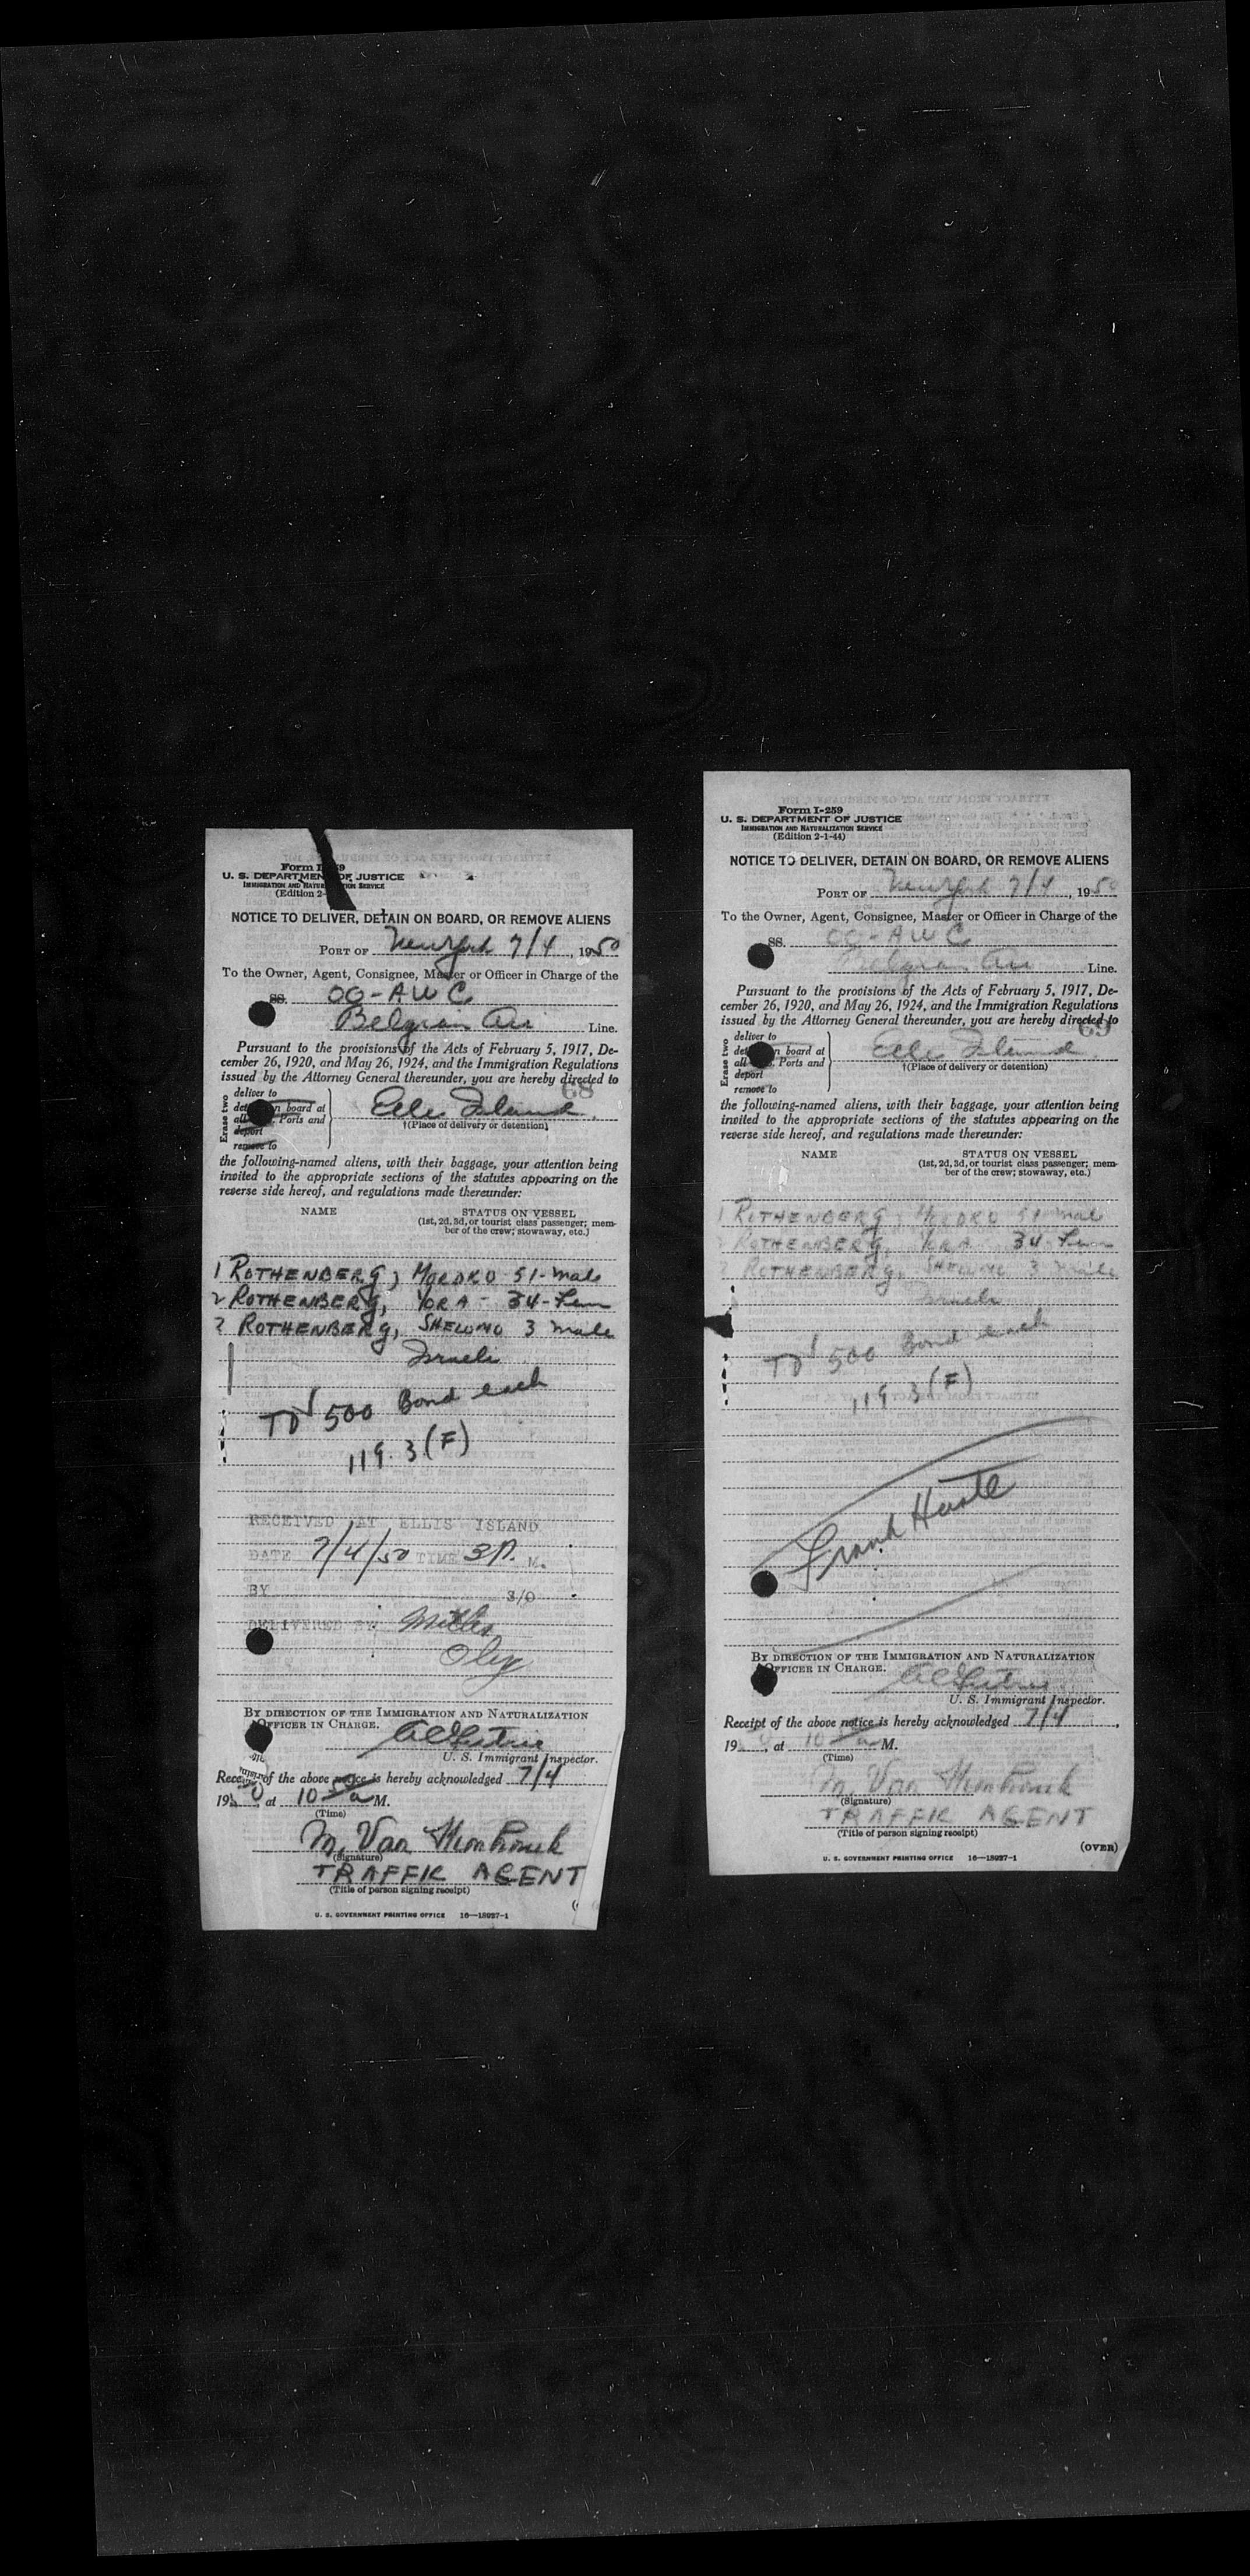 Form I-259
U. S. DEPARTMENT OF JUSTICE
IMMIGRATION AND NATURALIZATION SERVICE
(Edition 2-
NOTICE TO DELIVER, DETAIN ON BOARD, OR REMOVE ALIENS
PORT OF New York 7/4, 1950
To the Owner, Agent, Consignee, Master or Officer in Charge of the
SS. OO-AWC
Belgian Air Line.
Pursuant to the provisions of the Acts of February 5, 1917, De-
cember 26, 1920, and May 26, 1924, and the Immigration Regulations
issued by the Attorney General thereunder, you are hereby directed to
68
Erase two
deliver to
det n board at
all Ports and
deport
remove to
Ellis Island
†(Place of delivery or detention)
the following-named aliens, with their baggage, your attention being
invited to the appropriate sections of the statutes appearing on the
reverse side hereof, and regulations made thereunder:
NAME STATUS ON VESSEL
(1st, 2d, 3d, or tourist class passenger; mem-
ber of the crew; stowaway, etc.)
1 ROTHENBERG, MORDKO 51-male
2 ROTHENBERG, YORA - 34-Fem
3 ROTHENBERG, SHELOMO 3 male
Israeli
TD 500 Bond each
119.3(F)
RECEIVED AT ELLIS ISLAND
DATE 7/4/50 TIME 3P. M.
BY S/O
DELIVERED BY Miller
BY DIRECTION OF THE IMMIGRATION AND NATURALIZATION
OFFICER IN CHARGE.
U. S. Immigrant Inspector.
Receipt of the above notice is hereby acknowledged 7/4
1950, at 10 a M.
(Time)
M. Van
(Signature)
TRAFFIC AGENT
(Title of person signing receipt)
U. S. GOVERNMENT PRINTING OFFICE 16—18927-1
Form I-259
U. S. DEPARTMENT OF JUSTICE
IMMIGRATION AND NATURALIZATION SERVICE
(Edition 2-1-44)
NOTICE TO DELIVER, DETAIN ON BOARD, OR REMOVE ALIENS
PORT OF New York 7/4, 1950
To the Owner, Agent, Consignee, Master or Officer in Charge of the
SS. OO-AWC
Belgian Air Line.
Pursuant to the provisions of the Acts of February 5, 1917, De-
cember 26, 1920, and May 26, 1924, and the Immigration Regulations
issued by the Attorney General thereunder, you are hereby directed to
69
Erase two
deliver to
det n board at
all Ports and
deport
remove to
Ellis Island
†(Place of delivery or detention)
the following-named aliens, with their baggage, your attention being
invited to the appropriate sections of the statutes appearing on the
reverse side hereof, and regulations made thereunder:
NAME STATUS ON VESSEL
(1st, 2d, 3d, or tourist class passenger; mem-
ber of the crew; stowaway, etc.)
1 ROTHENBERG, MORDKO 51-male
2 ROTHENBERG, YORA 34-Fem
3 ROTHENBERG, SHELOMO 3 male
Israeli
TD 500 Bond each
119.3(F)
Frank
BY DIRECTION OF THE IMMIGRATION AND NATURALIZATION
OFFICER IN CHARGE.
U. S. Immigrant Inspector.
Receipt of the above notice is hereby acknowledged 7/4,
19 , at 10 a M.
(Time)
M. Van
(Signature)
TRAFFIC AGENT
(Title of person signing receipt)
(OVER)
U. S. GOVERNMENT PRINTING OFFICE 16—18927-1